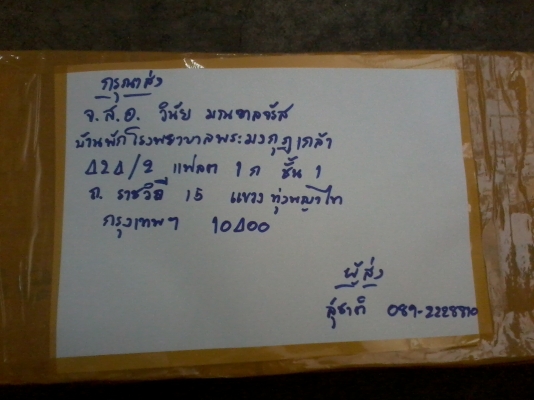 กรุณาส่ง
จ.ส.อ. วินัย
บ้านพักโรงพยาบาลพระมงกุฎเกล้า
424/2 แฟลต 1 ก ชั้น 1
ถ. ราชวิถี 15 แขวง ทุ่งพญาไท
กรุงเทพฯ 10400
ผู้ส่ง
สุชาติ 089-2228810